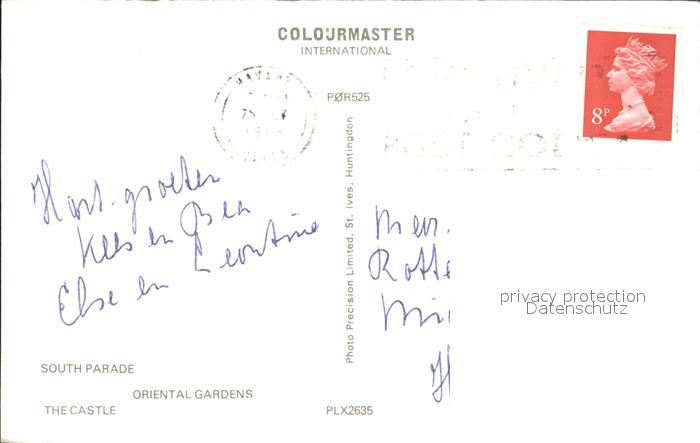 COLOURMASTER
INTERNATIONAL
PØR525
8P
POST CODE
Hart. groeten
Kees en Bea
Else en Leontine
Photo Precision Limited, St. Ives, Huntingdon
Mevr.
Rotte
privacy protection
Datenschutz
SOUTH PARADE
ORIENTAL GARDENS
THE CASTLE
PLX2635